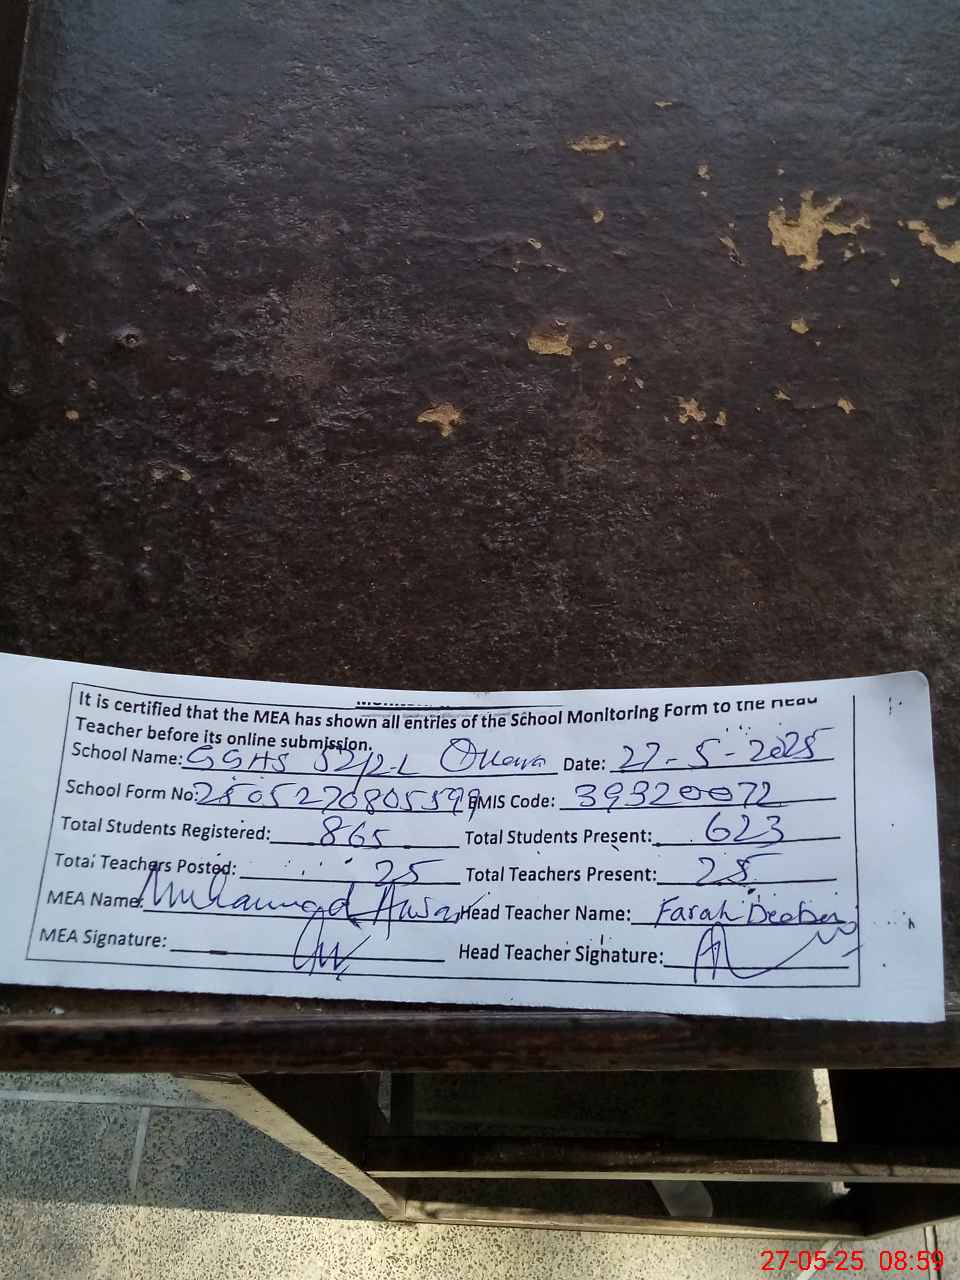 It is certified that the MEA has shown all entries of the School Monitoring Form to the Head
Teacher before its online submission.
School Name: GGHS 52/2-L Okara Date: 27-5-2025
School Form No: EMIS Code: 39320072
Total Students Registered: 865 Total Students Present: 623
Total Teachers Posted: 25 Total Teachers Present: 25
MEA Name: Muhammad Head Teacher Name: Farah Deeba
MEA Signature: Head Teacher Signature:
27-05-25 08:59